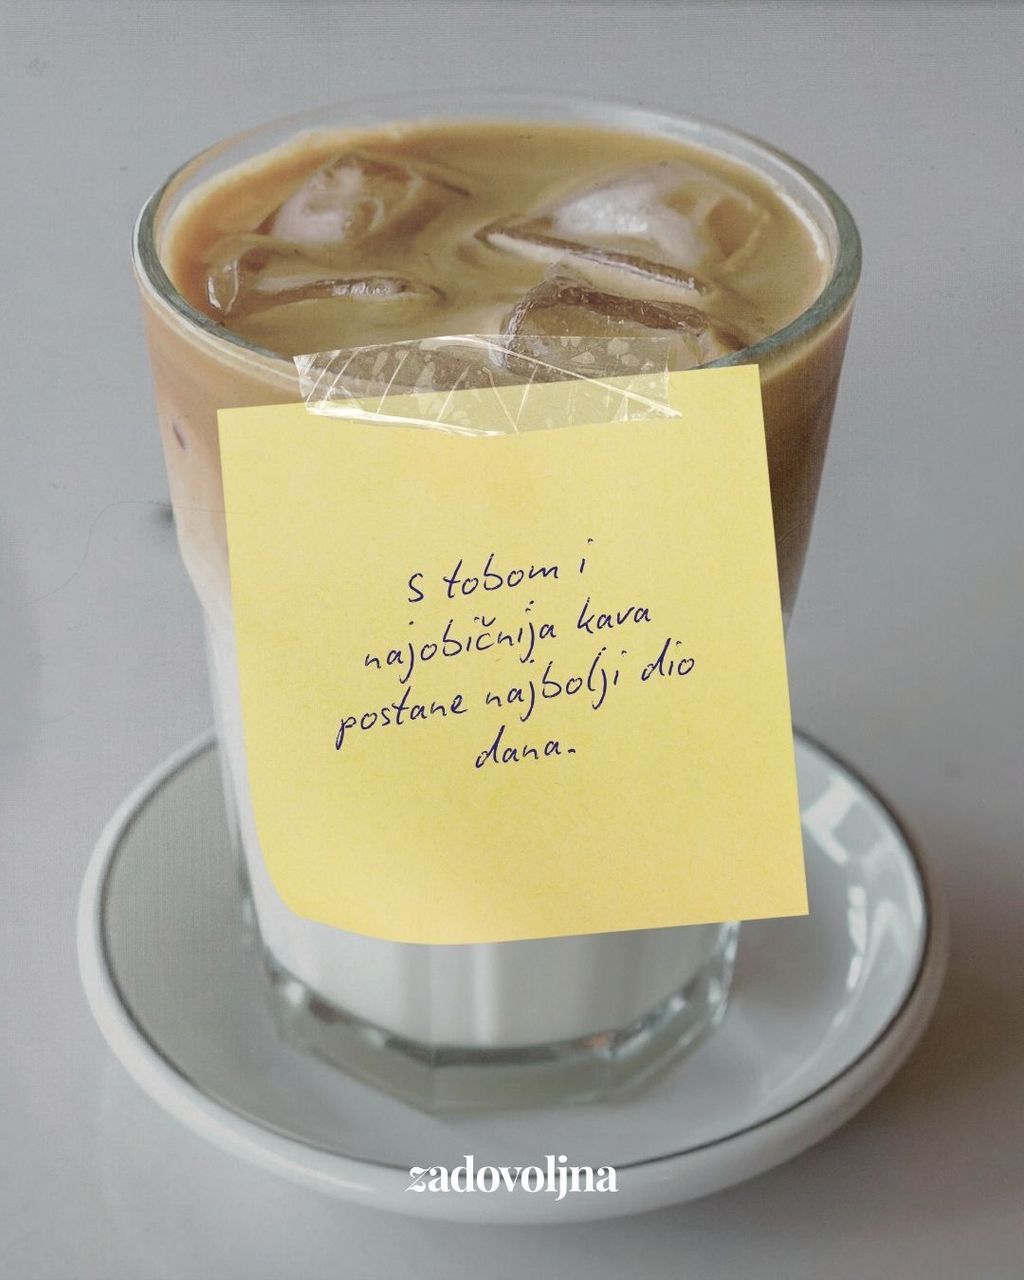 S tobom i
najobičnija kava
postane najbolji dio
dana.
zadovoljna